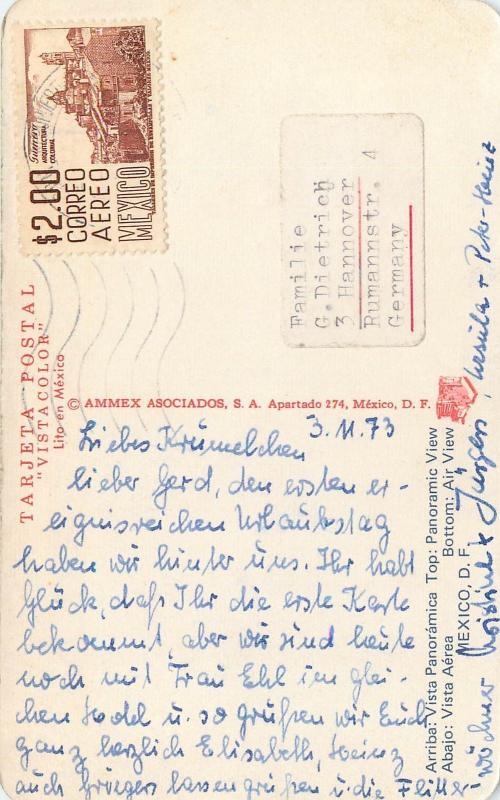 Guerrero
ARQUITECTURA
COLONIAL
$2.00
CORREO
AEREO
MEXICO
Familie
G.Dietrich
3 Hannover
Rumannstr. 4
Germany
TARJETA POSTAL
"VISTACOLOR"
Lito en México
© AMMEX ASOCIADOS, S. A. Apartado 274, México, D. F.
3.11.73
Liebes Krümelchen
lieber Gerd, den ersten er-
eignisreichen Urlaubstag
haben wir hinter uns. Ihr habt
Glück, daß Ihr die erste Karte
bekommt, aber wir sind heute
noch mit Frau Ehl im glei-
chen Hotel u. so grüßen wir Euch
ganz herzlich Elisabeth, Heinz
auch lassen grüßen u. die Flitter-
wöchner + Jürgen, Ursula + Peter-Heinz
Arriba: Vista Panorámica Top: Panoramic View
Abajo: Vista Aérea Bottom: Air View
MEXICO, D. F.